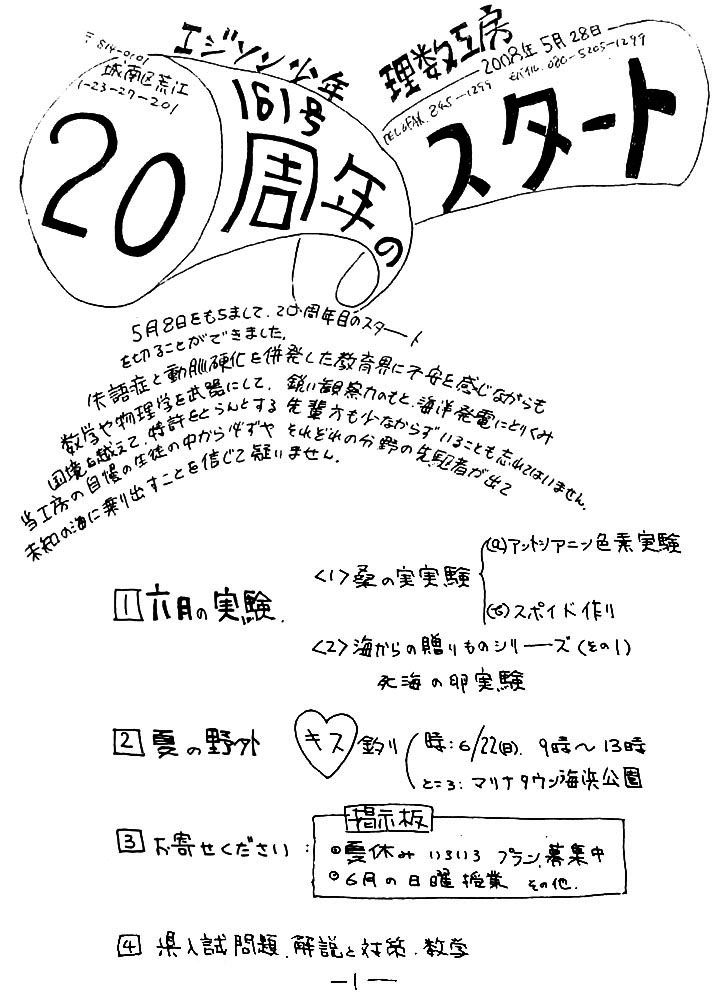 エジソン少年 理数工房
〒814-0101
城南区荒江
1-23-27-201
161号
2008年5月28日
TEL&FAX. 845-1299 モバイル. 080-5205-1299
20周年のスタート
5月8日をもちまして、20周年目のスタート
を切ることができました。
失語症と動脈硬化を併発した教育界に不安を感じながらも
数学や物理学を武器にして、鋭い観察力のもと、海洋発電にとりくみ
国境を越えて、特許をとらんとする先輩方も少なからずいることも忘れてはいません。
当工房の自慢の生徒の中から必ずや それぞれの分野の先駆者が出て
未知の海に乗り出すことを信じて疑いません。
1 六月の実験.
<1> 桑の実実験
(a)アントシアニン色素実験
(b)スポイド作り
<2> 海からの贈りものシリーズ(その1)
死海の卵実験
2 夏の野外 キス釣り
時:6/22(日). 9時〜13時
ところ:マリナタウン海浜公園
3 お寄せください:
掲示板
夏休み いろいろ プラン、募集中
6月の日曜授業 その他.
4 県入試問題.解説と対策.数学
—1—